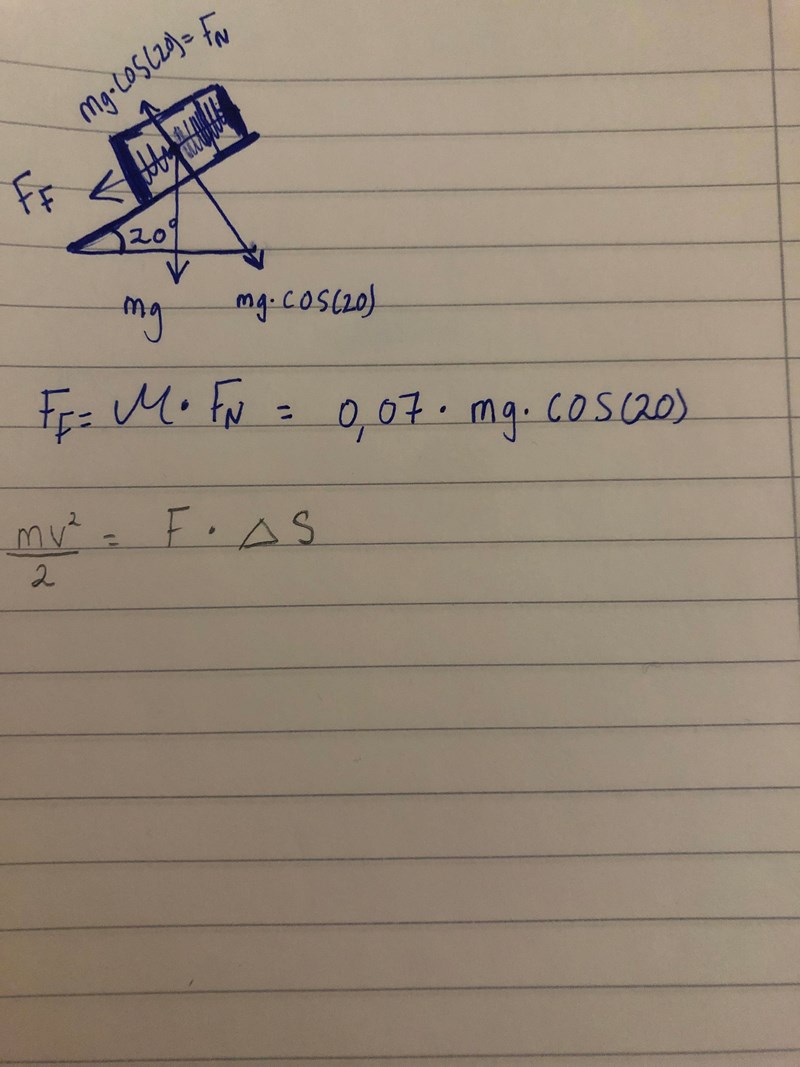 mg·cos(20)=F_N
F_F
20°
mg
mg·cos(20)
F_F = μ · F_N = 0,07 · mg · cos(20)
mv²/2 = F · Δs